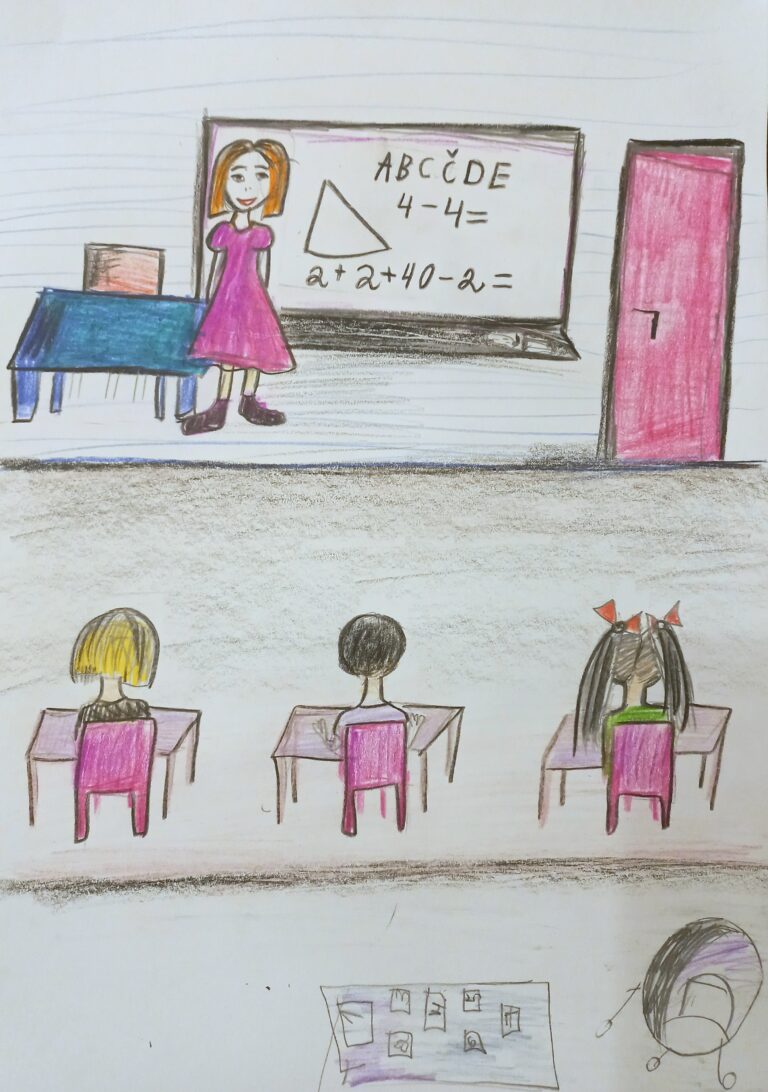 ABCČDE
4-4=
2+2+40-2=